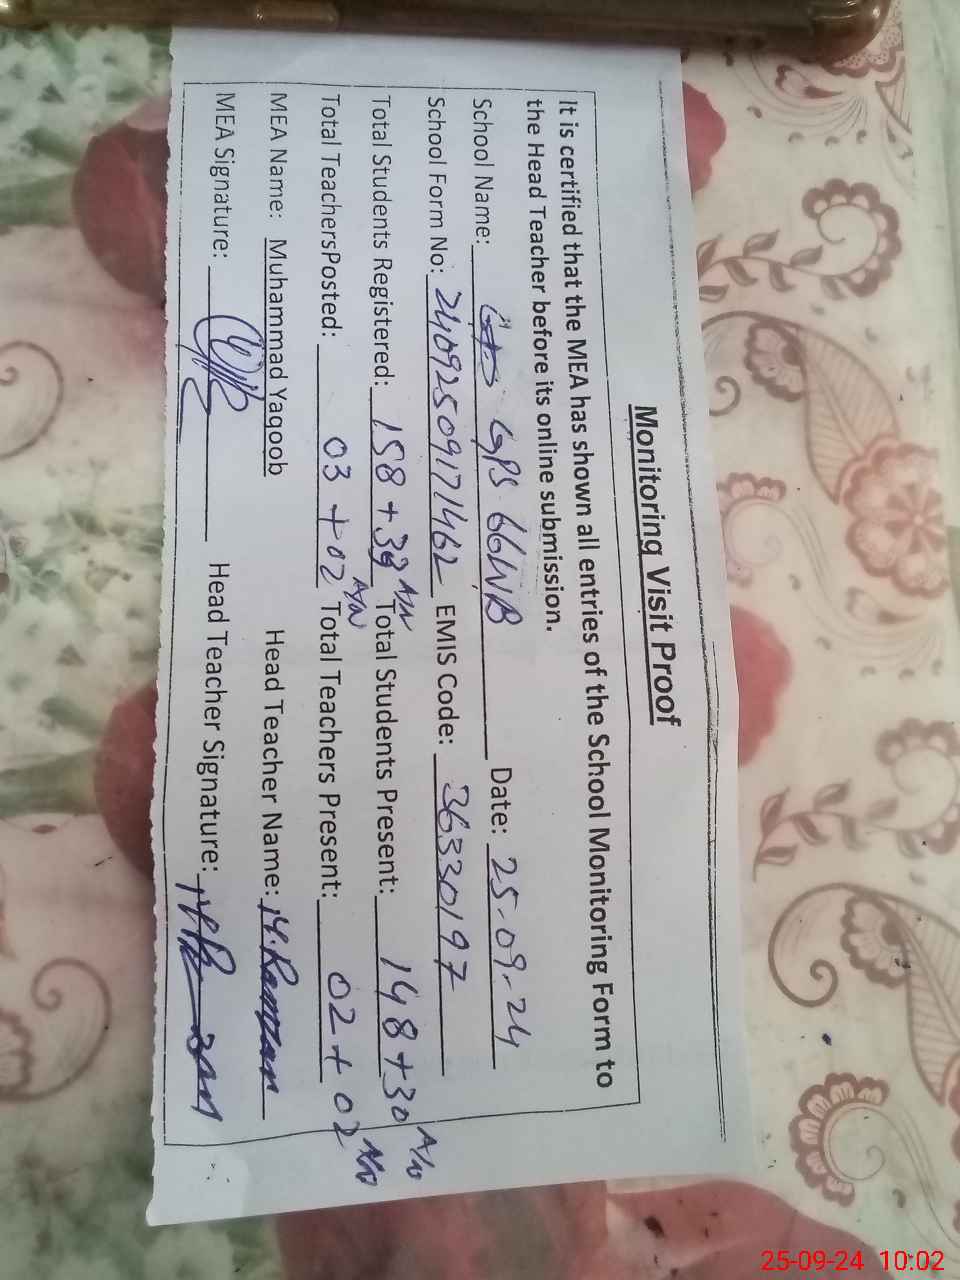 Monitoring Visit Proof
It is certified that the MEA has shown all entries of the School Monitoring Form to
the Head Teacher before its online submission.
School Name: GPS 66WB Date: 25-09-24
School Form No: 24092509171462 EMIS Code: 36330197
Total Students Registered: 158+39 A/N Total Students Present: 148+30 A/N
Total TeachersPosted: 03+02 A/N Total Teachers Present: 02+02 A/N
MEA Name: Muhammad Yaqoob Head Teacher Name: M.Ramzan
MEA Signature: Head Teacher Signature:
25-09-24 10:02